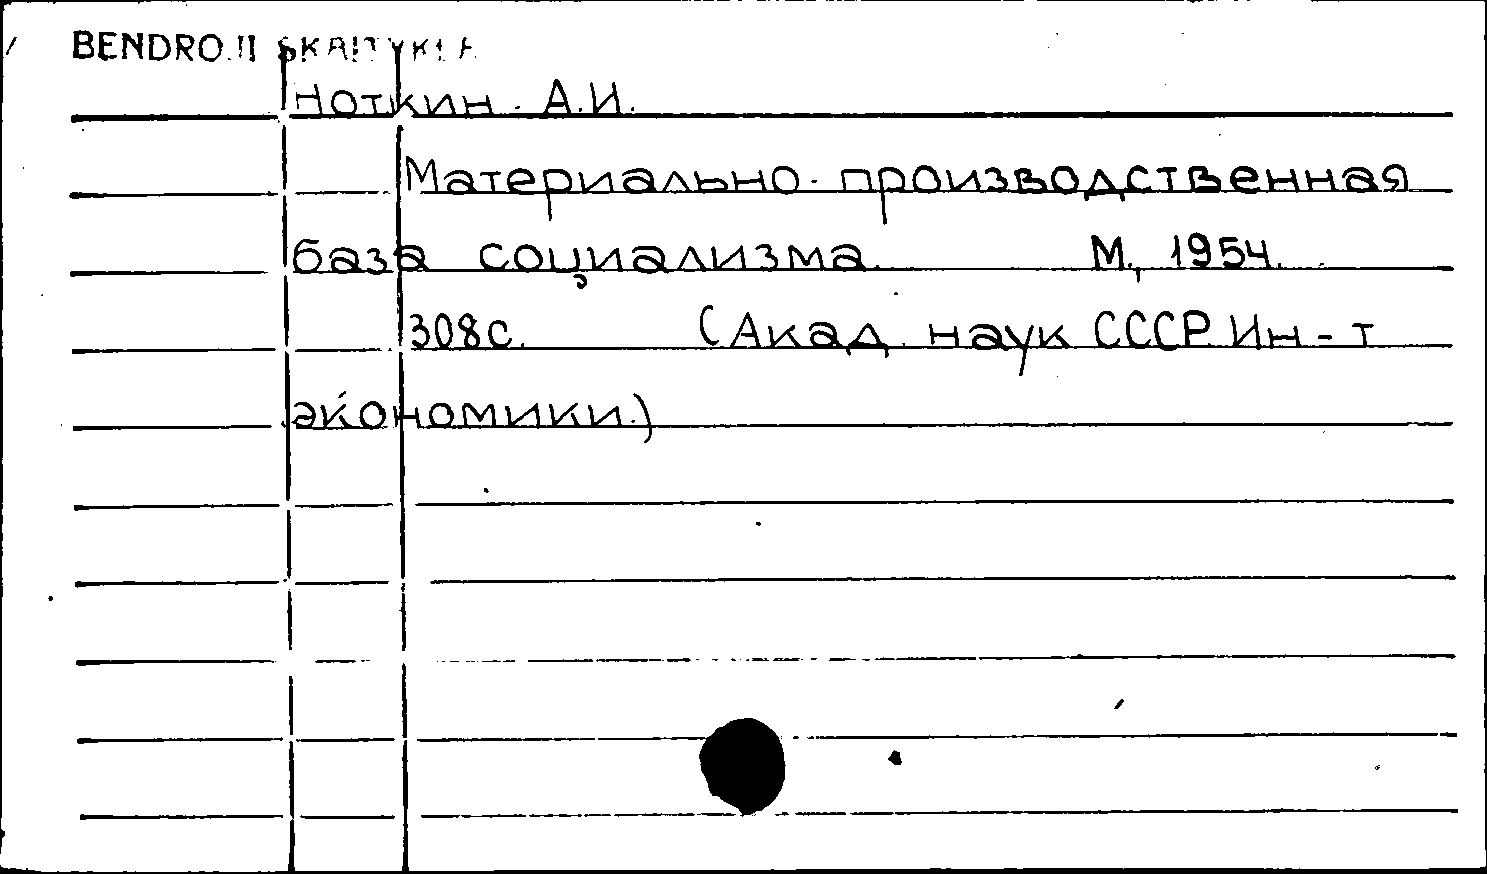 BENDRO.II SKAITYKLA
Ноткин. А.И.
Материально-производственная
база социализма. М., 1954.
308с. (Акад. наук СССР. Ин-т
экономики.)